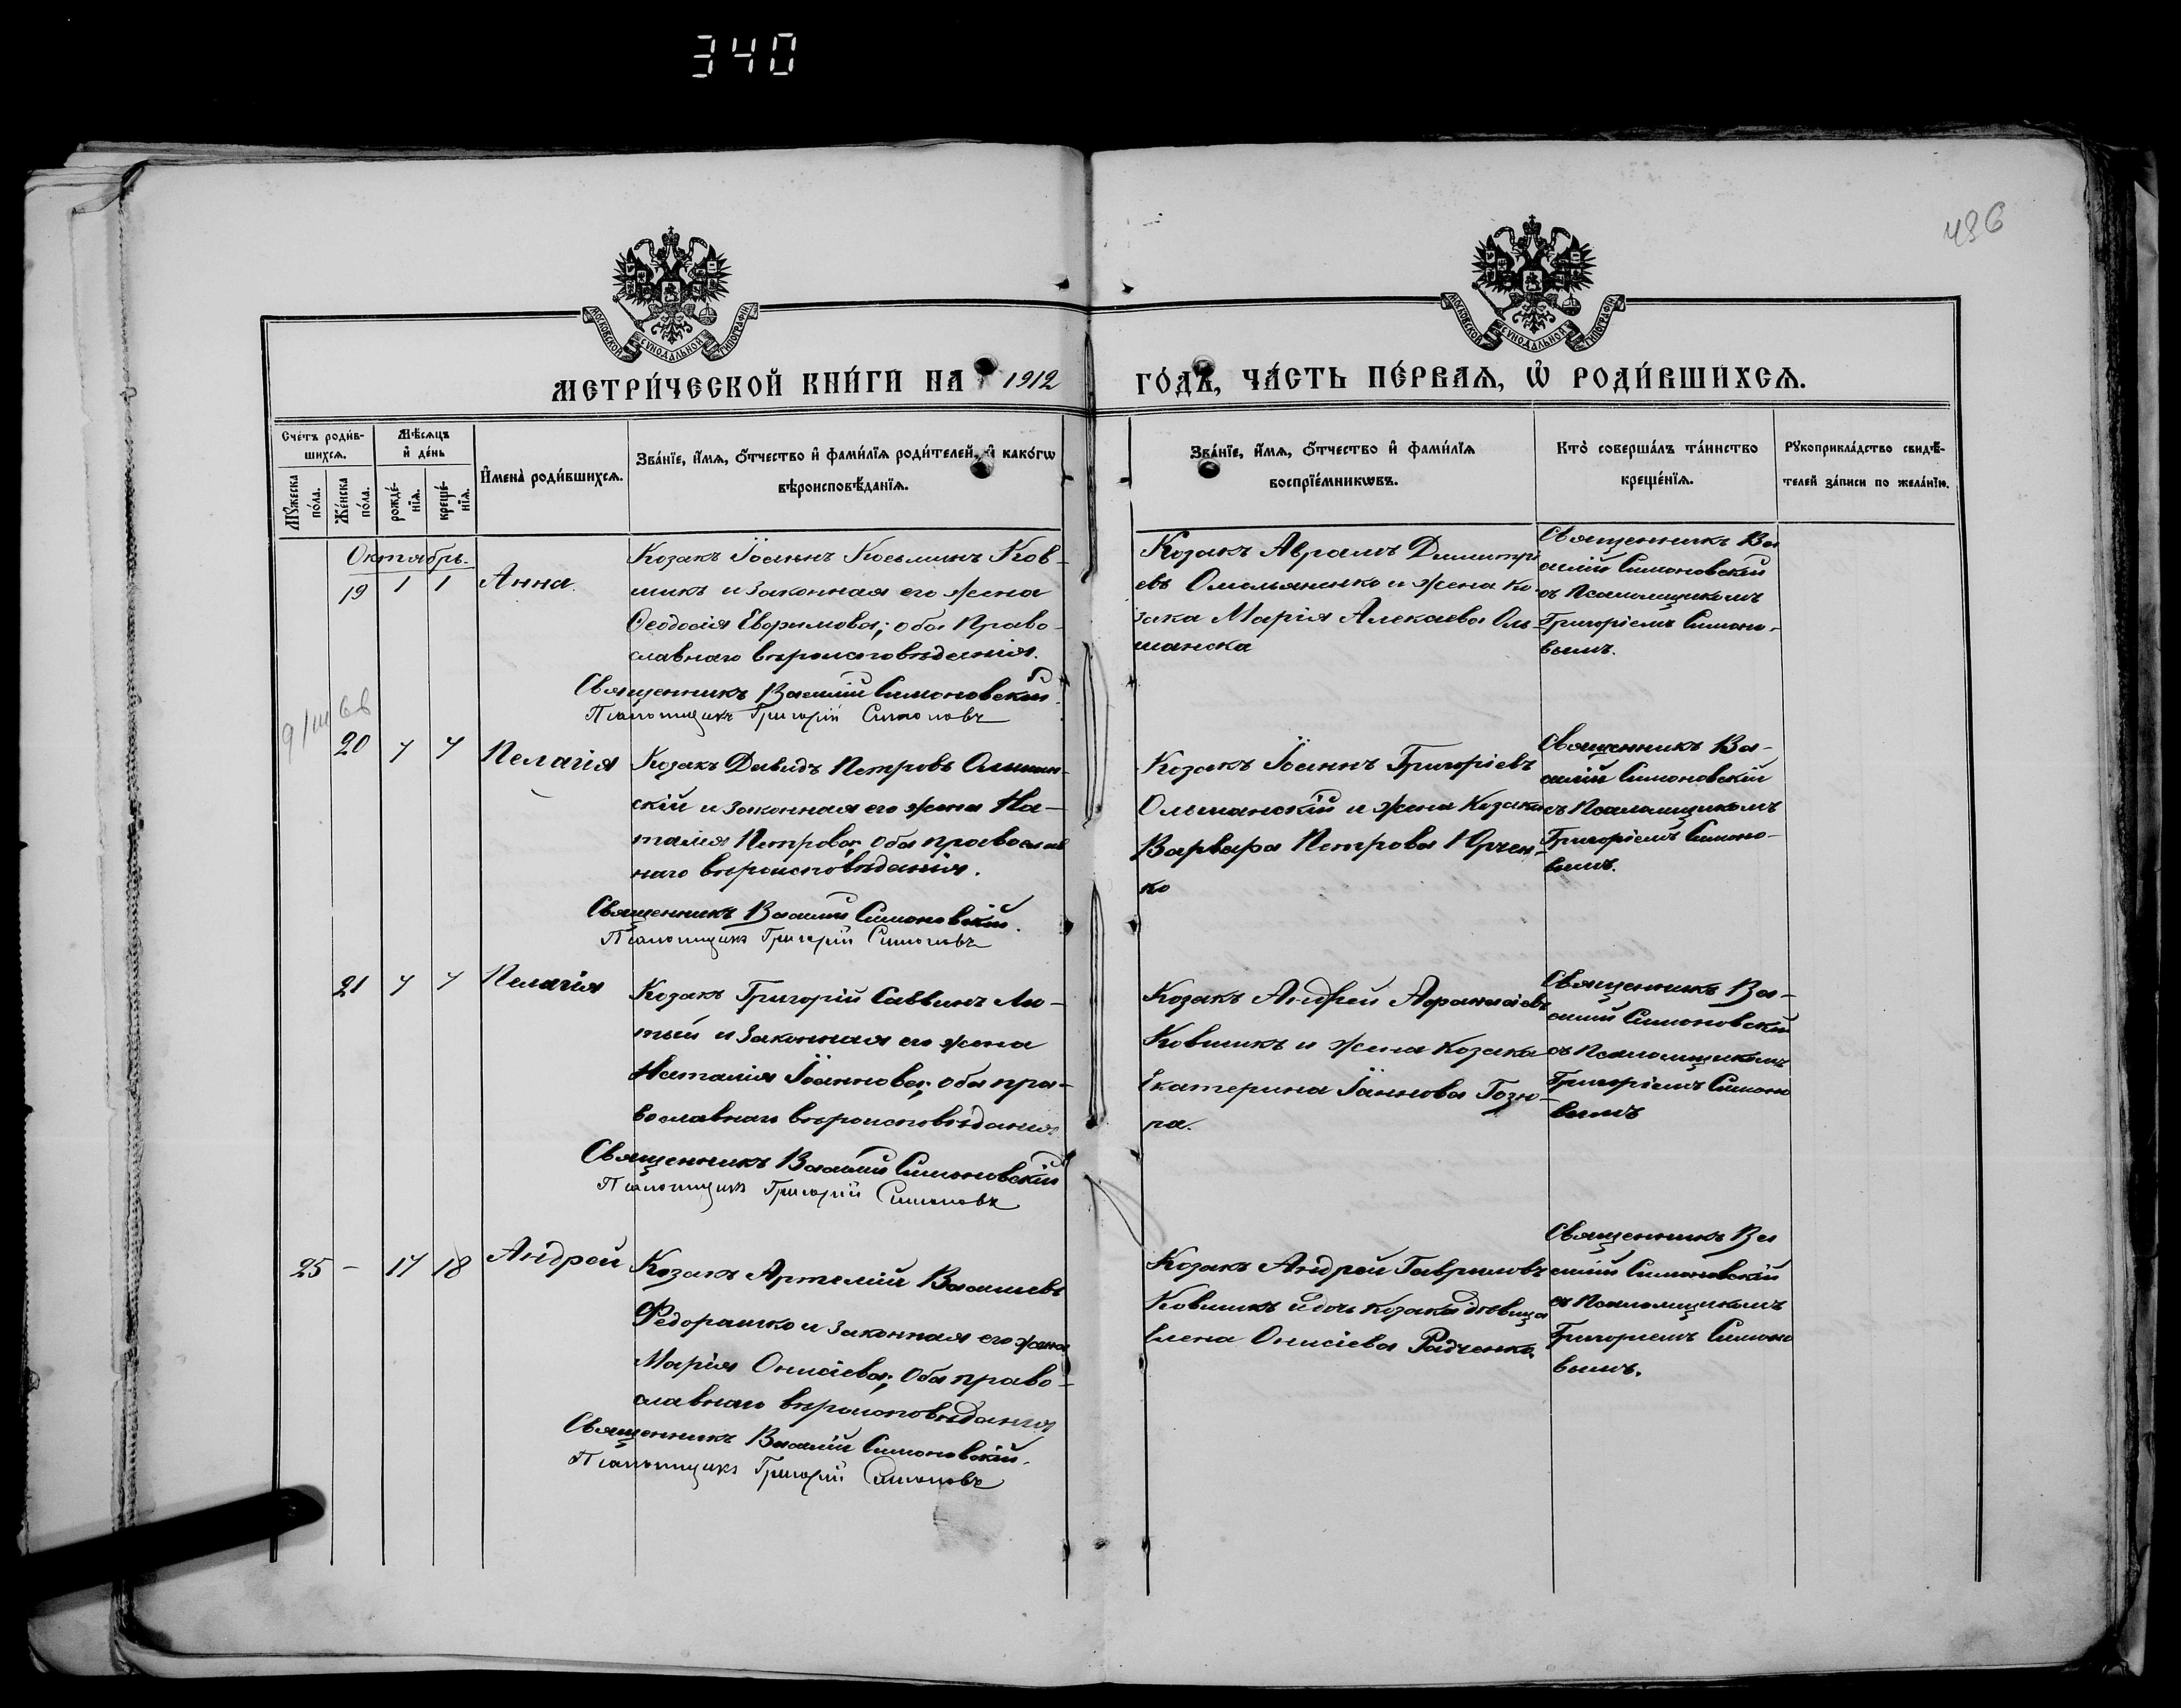 340
436
МОСКОВСКОЙ СУНОДАЛЬНОЙ ТИПОГРАФІИ
МОСКОВСКОЙ СУНОДАЛЬНОЙ ТИПОГРАФІИ
МЕТРИ́ЧЕСКОЙ КНИ́ГИ НА 1912 ГО́ДЪ, ЧА́СТЬ ПЕ́РВАЯ, Ѡ҆ РОДИ́ВШИХСЯ.
Сче́тъ роди́в-
шихся.
Мꙋжеска по́ла.
Же́нска по́ла.
Мѣ́сяцъ
и҆ де́нь
рожде́-
нїя.
креще́-
нїя.
И҆мена̀ роди́вшихся.
Зва́нїе, и҆́мя, ѻ҆́тчество и҆ фами́лїя роди́телей, и҆ како́гѡ
вѣроисповѣ́данїя.
Зва́нїе, и҆́мя, ѻ҆́тчество и҆ фами́лїя
воспрїе́мникѡвъ.
Кто̀ соверша́лъ та́инство
креще́нїя.
Рꙋкоприкла́дство свидѣ́-
телей за́писи по жела́нїю.
Октябрь.
19 1 1 Анна.
Козакъ Іоаннъ Косьминъ Ков-
шикъ и законная его жена
Ѳеодосія Евфимова; оба Право-
славнаго вѣроисповѣданія.
Священникъ Василій Симоновскій.
Псаломщикъ Григорій Симоновъ
Козакъ Аврамъ Димитрі-
евъ Омельяненко и жена ко-
зака Марія Алексѣева Оль-
шанска
Священникъ Ва
силій Симоновскій
съ Псаломщикомъ
Григоріемъ Симоно-
вымъ.
20 7 7 Пелагія
Козакъ Давидъ Петровъ Ольшан-
скій и законная его жена На-
талія Петрова; оба православ
наго вѣроисповѣданія.
Священникъ Василій Симоновскій.
Псаломщикъ Григорій Симоновъ
Козакъ Іоаннъ Григоріевъ
Ольшанскій и жена Козака
Варвара Петрова Юрчен-
ко
Священникъ Ва-
силій Симоновскій
съ Псаломщикомъ
Григоріемъ Симоно-
вымъ.
21 7 7 Пелагія
Козакъ Григорій Саввинъ Лю-
тый и законная его жена
Наталія Іоаннова; оба пра-
вославнаго вѣроисповѣданія.
Священникъ Василій Симоновскій
Псаломщикъ Григорій Симоновъ
Козакъ Андрей Афанасіевъ
Ковшикъ и жена Козака
Екатерина Іаннова
Священникъ Ва-
силій Симоновскій
съ Псаломщикомъ
Григоріемъ Симоно
вымъ
25 - 17 18 Андрей
Козакъ Артемій Васильевъ
Федорашко и законная его жена
Марія Онисіева; Оба право-
славнаго вѣроисповѣданія
Священникъ Василій Симоновскій.
Псаломщикъ Григорій Симоновъ
Козакъ Андрей Гавриловъ
Ковшикъ и дочь козака дѣвица
Елена Онисіева Радченко.
Священникъ Ва
силій Симоновскій
съ Псаломщикомъ
Григоріемъ Симоно
вымъ.